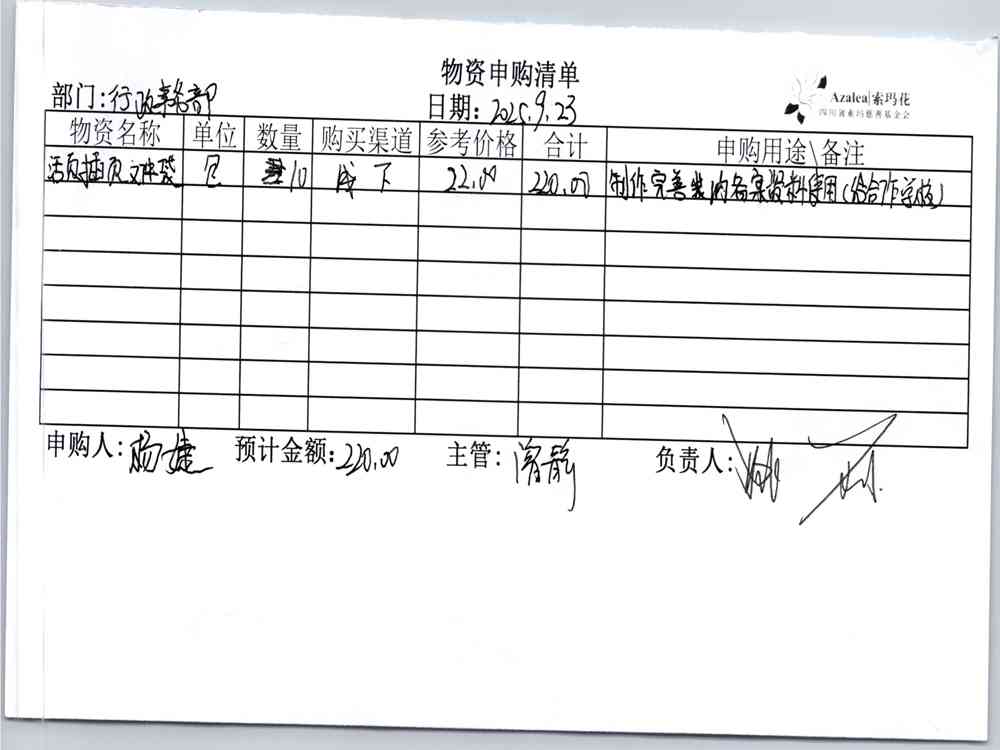 物资申购清单
部门:行政事务部
日期:2025.9.23
Azalea|索玛花
四川省索玛慈善基金会
物资名称 单位 数量 购买渠道 参考价格 合计 申购用途\备注
活页插页文件袋 包 10 线下 22.00 220.00 制作完善 内备案资料使用(给合作学校)
申购人:杨捷 预计金额:220.00 主管:曾静 负责人: